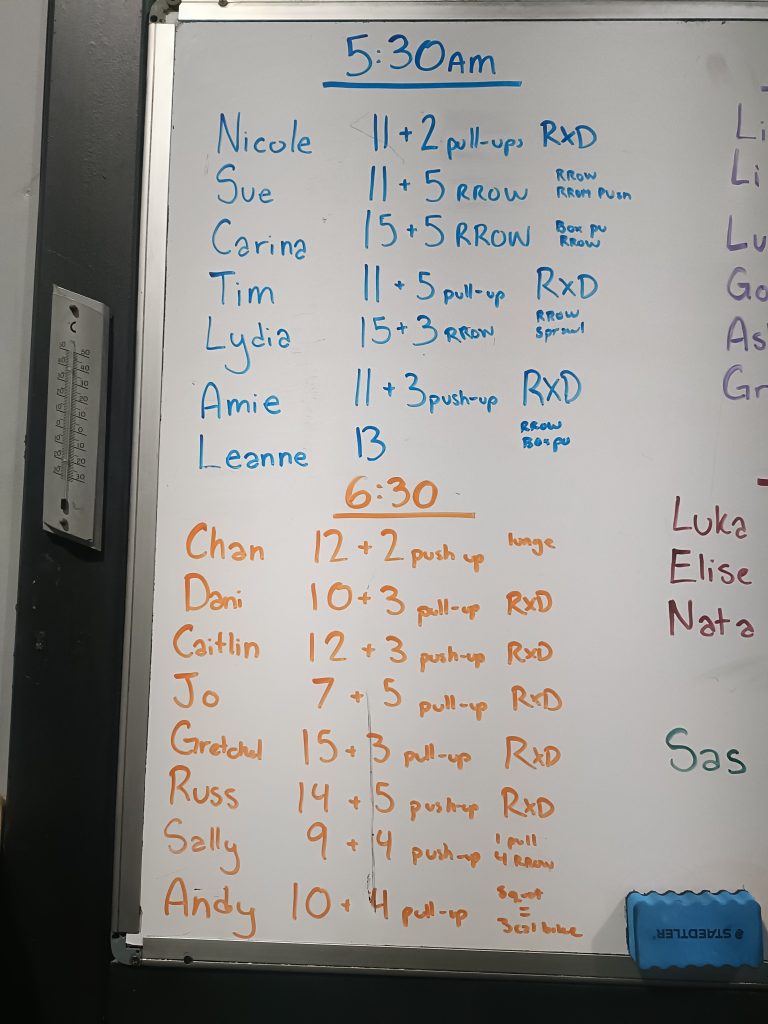 5:30AM
Nicole 11 + 2 pull-ups RxD
Sue 11 + 5 RROW RROW
RROM PUSH
Carina 15 + 5 RROW Box pu
RROW
Tim 11 + 5 pull-up RxD
Lydia 15 + 3 RROW RROW
Sprawl
Amie 11 + 3 push-up RxD
Leanne 13 RROW
Box pu
6:30
Chan 12 + 2 push up lunge
Dani 10 + 3 pull-up RxD
Caitlin 12 + 3 push-up RxD
Jo 7 + 5 pull-up RxD
Gretchel 15 + 3 pull-up RxD
Russ 14 + 5 push-up RxD
Sally 9 + 4 push-up 1 pull
4 RROW
Andy 10 + 4 pull-up Squat
=
3 cal bike
Li
Li
Lu
Go
As
Gr
Luka
Elise
Nata
Sas
STAEDTLER